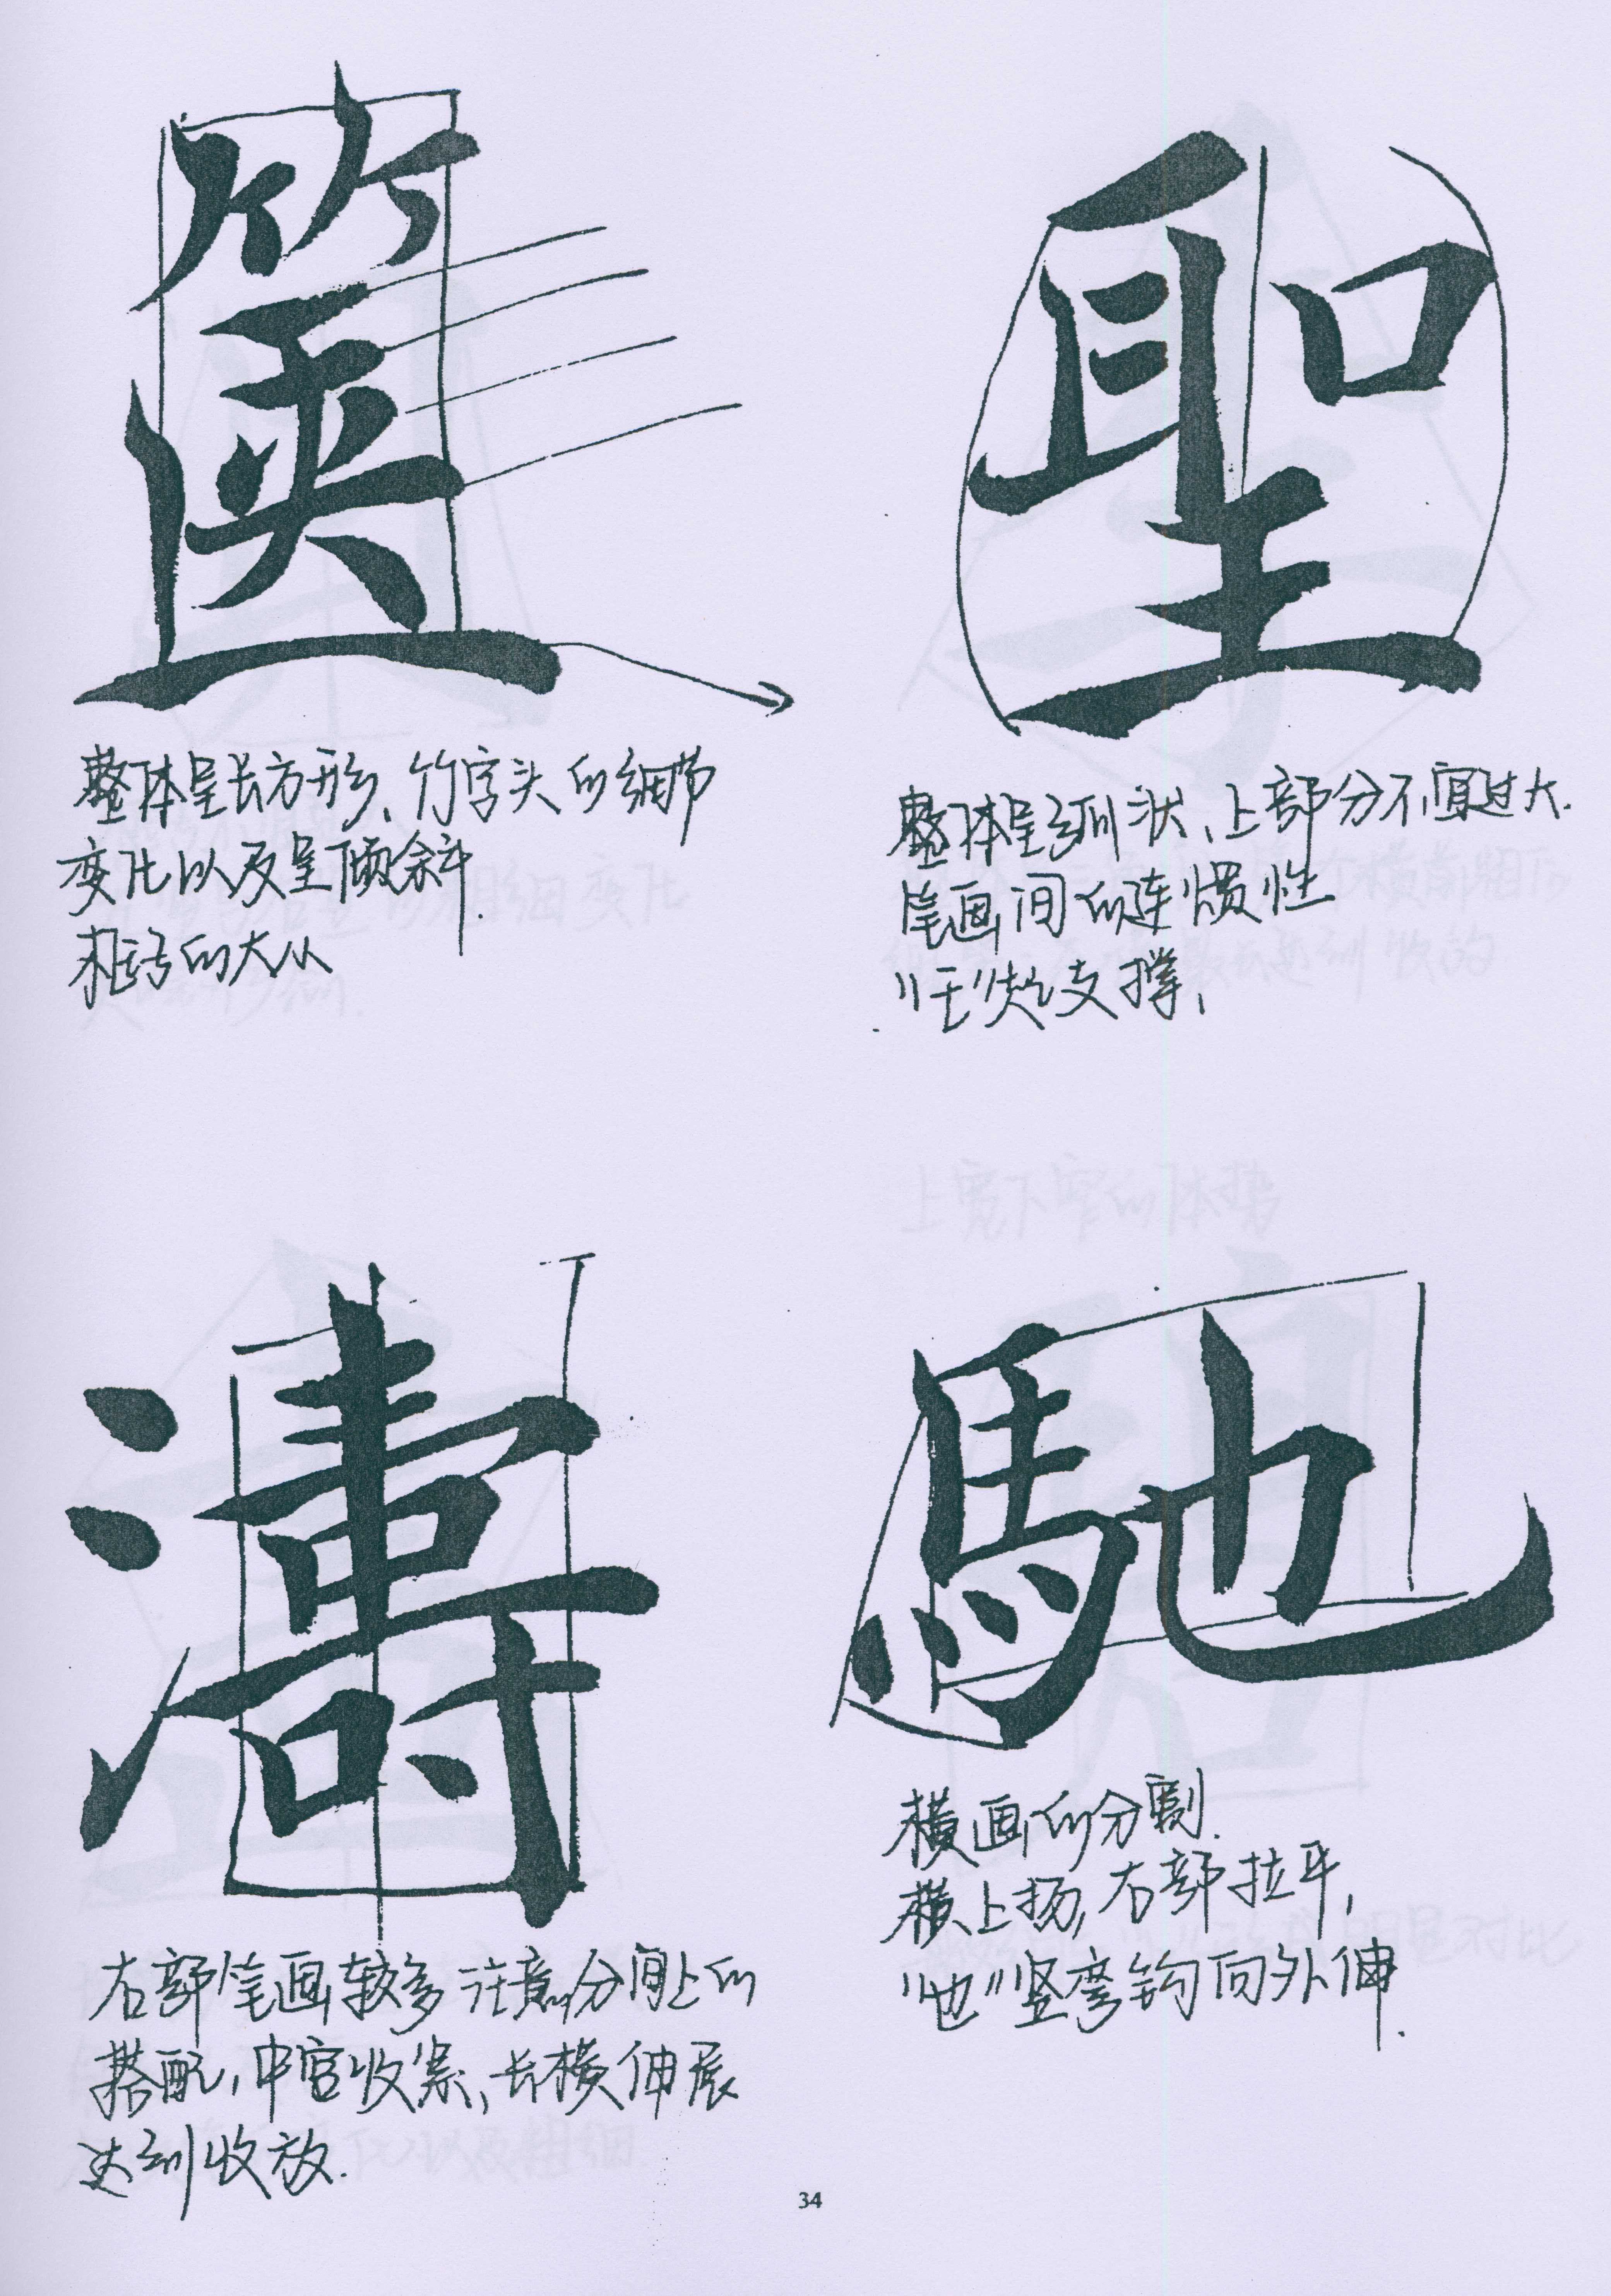 篋
整体呈长方形、竹字头的细节
变化以及呈倾斜.
框的大小
聖
整体呈弧状、上部分不宜过大.
笔画间的连惯性
"王"起支撑、
濤
右部笔画较多注意分间上的
搭配,中宫收紧、长横伸展
达到收放.
馳
横画的分割.
横上扬,右部拉平,
"也"竖弯钩向外伸.
34